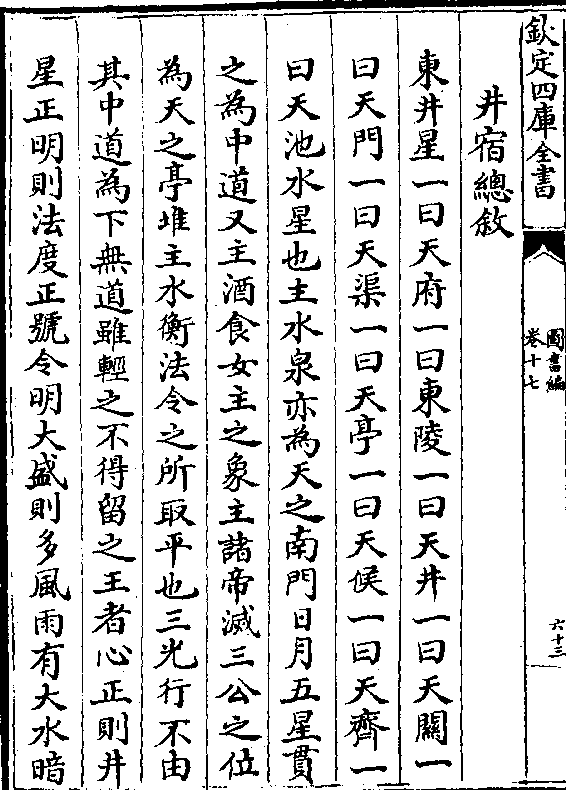 欽定四庫全書
圖書編
卷十七
六十三
井宿總敘
東井星一曰天府一曰東陵一曰天井一曰天關一
曰天門一曰天渠一曰天亭一曰天候一曰天齊一
曰天池水星也主水泉亦為天之南門日月五星貫
之為中道又主酒食女主之象主諸帝滅三公之位
為天之亭堆主水衡法令之所取平也三光行不由
其中道為下無道雖輕之不得留之王者心正則井
星正明則法度正號令明大盛則多風雨有大水暗